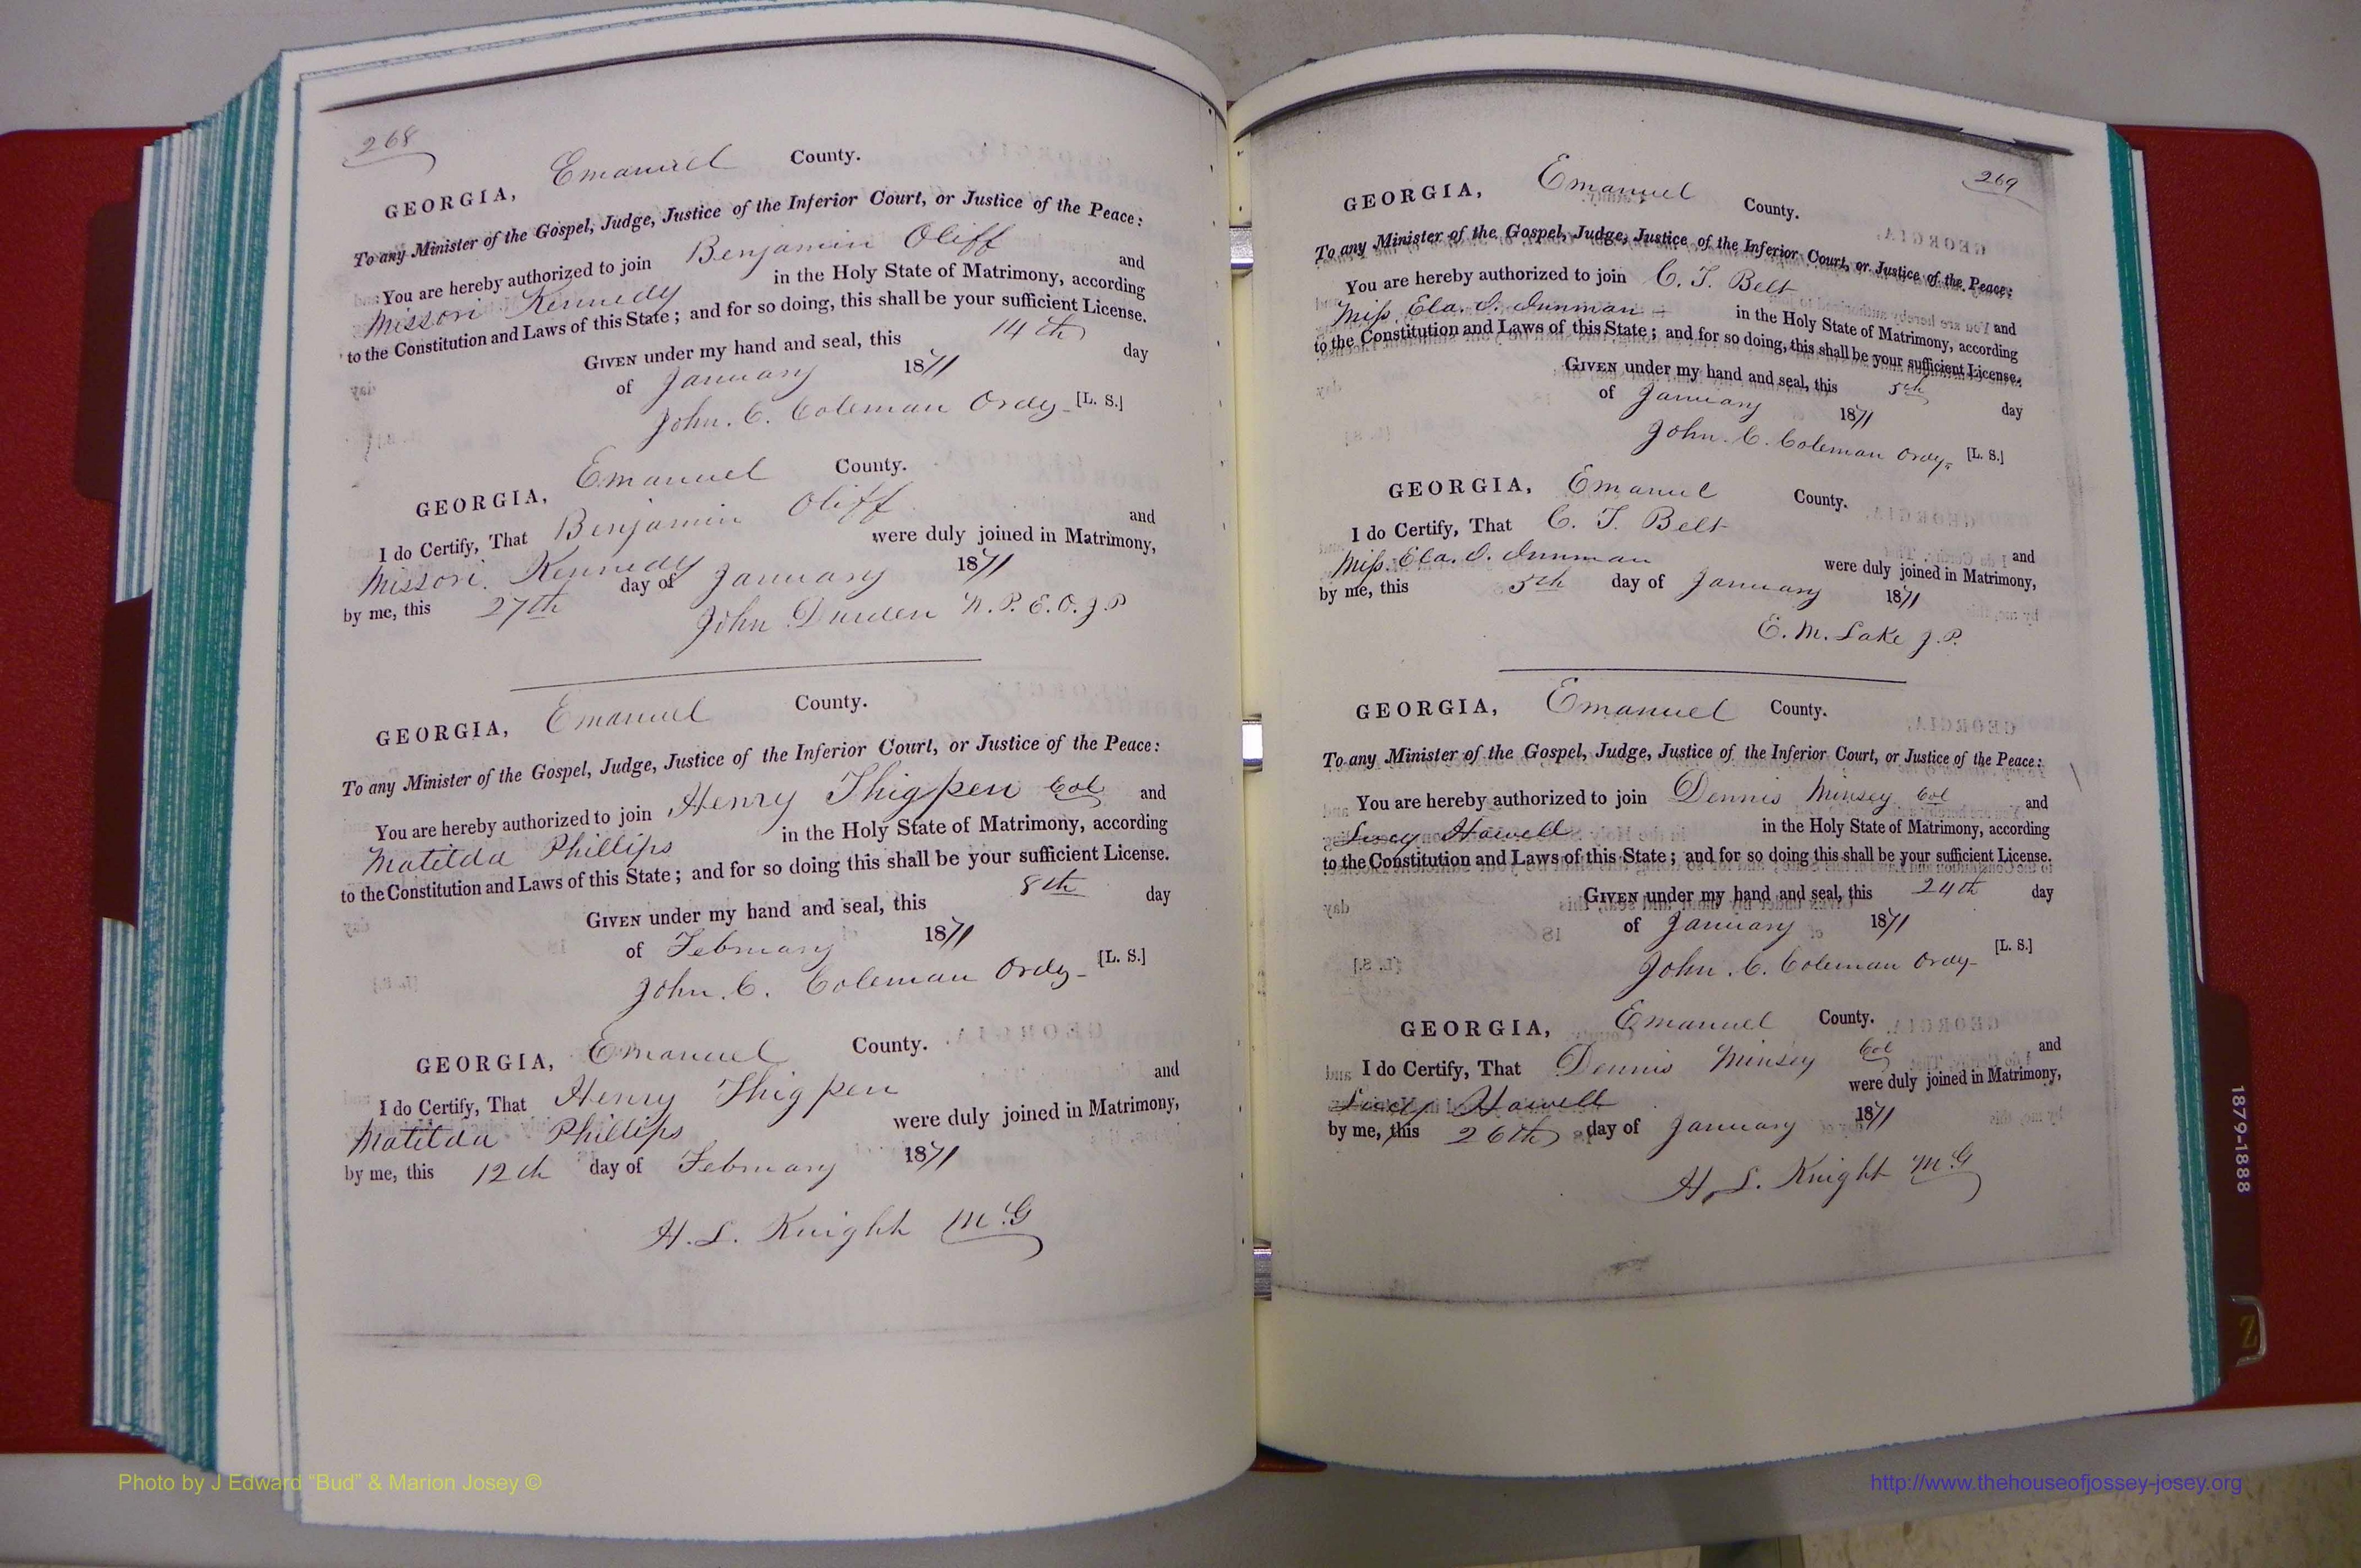 268
GEORGIA, Emanuel County.
To any Minister of the Gospel, Judge, Justice of the Inferior Court, or Justice of the Peace:
You are hereby authorized to join Benjamin Oliff and
Missori Kennedy in the Holy State of Matrimony, according
to the Constitution and Laws of this State; and for so doing, this shall be your sufficient License.
GIVEN under my hand and seal, this 14th day
of January 1871
John. C. Coleman Ordy- [L. S.]
GEORGIA, Emanuel County.
I do Certify, That Benjamin Oliff and
Missori. Kennedy were duly joined in Matrimony,
by me, this 27th day of January 1871
John Durden N. P. E. O. J P
GEORGIA, Emanuel County.
To any Minister of the Gospel, Judge, Justice of the Inferior Court, or Justice of the Peace:
You are hereby authorized to join Henry Thigpen Col and
Matilda Phillips in the Holy State of Matrimony, according
to the Constitution and Laws of this State; and for so doing this shall be your sufficient License.
GIVEN under my hand and seal, this 8th day
of February 1871
John. C. Coleman Ordy- [L. S.]
GEORGIA, Emanuel County.
I do Certify, That Henry Thigpen and
Matilda Phillips were duly joined in Matrimony,
by me, this 12th day of February 1871
H. L. Knight M. G
269
GEORGIA, Emanuel County.
To any Minister of the Gospel, Judge, Justice of the Inferior Court, or Justice of the Peace:
You are hereby authorized to join C. T. Belt and
Miss Ela. I. Inman in the Holy State of Matrimony, according
to the Constitution and Laws of this State; and for so doing, this shall be your sufficient License.
GIVEN under my hand and seal, this 5th day
of January 1871
John. C. Coleman Ordy- [L. S.]
GEORGIA, Emanuel County.
I do Certify, That C. T. Belt and
Miss. Ela. I. Inman were duly joined in Matrimony,
by me, this 5th day of January 1871
E. M. Lake J. P.
GEORGIA, Emanuel County.
To any Minister of the Gospel, Judge, Justice of the Inferior Court, or Justice of the Peace:
You are hereby authorized to join Dennis Minsey Col and
Lucy Howell in the Holy State of Matrimony, according
to the Constitution and Laws of this State; and for so doing this shall be your sufficient License.
GIVEN under my hand and seal, this 24th day
of January 1871
John. C. Coleman Ordy- [L. S.]
GEORGIA, Emanuel County.
I do Certify, That Dennis Minsey Col and
Lucy Howell were duly joined in Matrimony,
by me, this 26th day of January 1871
H. L. Knight M. G
1879-1888
Z
Photo by J Edward "Bud" & Marion Josey ©
http://www.thehouseofjossey-josey.org